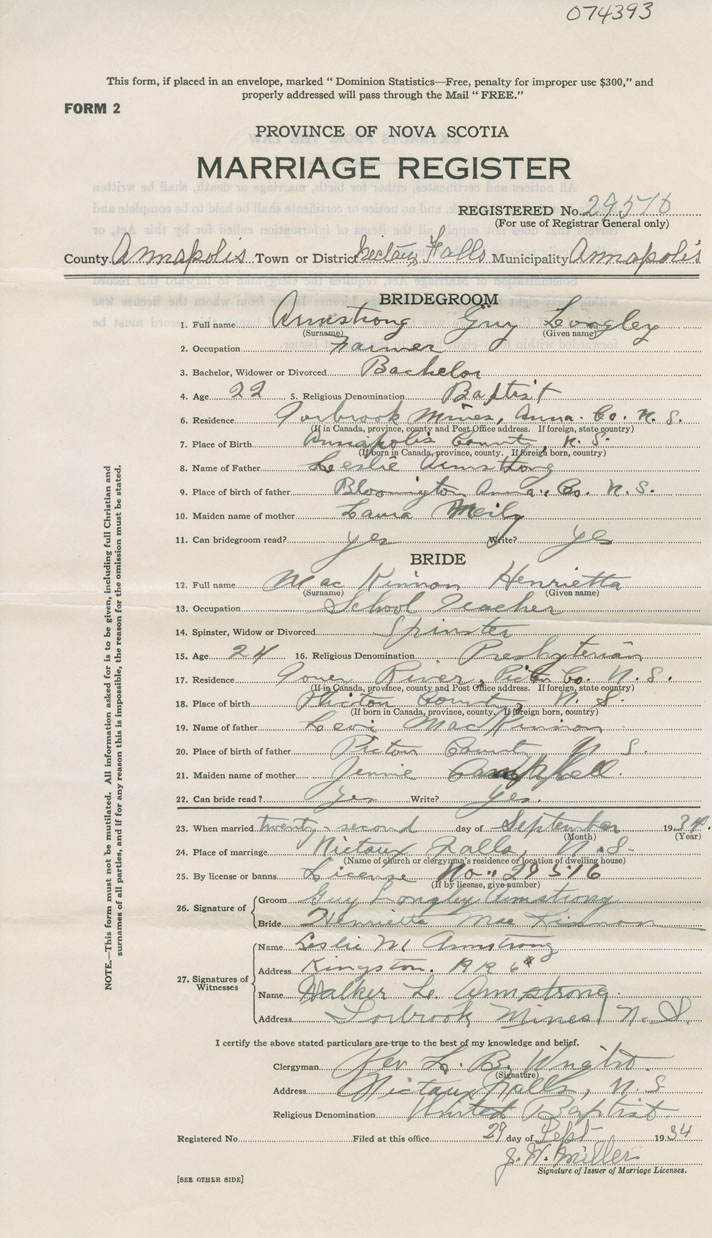 074393
This form, if placed in an envelope, marked " Dominion Statistics—Free, penalty for improper use $300," and
properly addressed will pass through the Mail " FREE."
FORM 2
PROVINCE OF NOVA SCOTIA
MARRIAGE REGISTER
REGISTERED No. 29516
(For use of Registrar General only)
County Annapolis Town or District Nictaux Falls Municipality Annapolis
BRIDEGROOM
1. Full name Armstrong Guy Longley
(Surname) (Given name)
2. Occupation Farmer
3. Bachelor, Widower or Divorced Bachelor
4. Age 22 5. Religious Denomination Baptist
6. Residence Torbrook Mines, Anna. Co. N. S.
(If in Canada, province, county and Post Office address. If foreign, state country)
7. Place of Birth Annapolis County, N. S.
(If born in Canada, province, county. If foreign born, country)
8. Name of Father Leslie Armstrong
9. Place of birth of father Bloomington Anna. Co. N. S.
10. Maiden name of mother Laura
11. Can bridegroom read? yes Write? yes
BRIDE
12. Full name Mac Kinnon Henrietta
(Surname) (Given name)
13. Occupation School Teacher
14. Spinster, Widow or Divorced Spinster
15. Age 24 16. Religious Denomination Presbyterian
17. Residence River, Pictou Co. N. S.
(If in Canada, province, county and Post Office address. If foreign, state country)
18. Place of birth Pictou County, N. S.
(If born in Canada, province, county. If foreign born, country)
19. Name of father Levi MacKinnon
20. Place of birth of father Pictou County N S.
21. Maiden name of mother Jennie Campbell
22. Can bride read? Yes Write? Yes.
23. When married twenty-second day of September 1934.
(Month) (Year)
24. Place of marriage Nictaux Falls, N. S.
(Name of church or clergyman's residence or location of dwelling house)
25. By license or banns License No. 29516
(If by license, give number)
26. Signature of Groom Guy Longley Armstrong
Bride Henrietta Mac Kinnon
27. Signatures of Witnesses
Name Leslie M Armstrong
Address Kingston. R R
Name Walker Le. Armstrong.
Address Torbrook Mines N. S.
I certify the above stated particulars are true to the best of my knowledge and belief.
Clergyman Rev L. B. Wright.
(Signature)
Address Nictaux Falls, N. S
Religious Denomination United Baptist
Registered No. Filed at this office 29 day of Sept 1934
J. W. Miller
Signature of Issuer of Marriage Licenses.
[SEE OTHER SIDE]
NOTE.—This form must not be mutilated. All information asked for is to be given, including full Christian and
surnames of all parties, and if for any reason this is impossible, the reason for the omission must be stated.